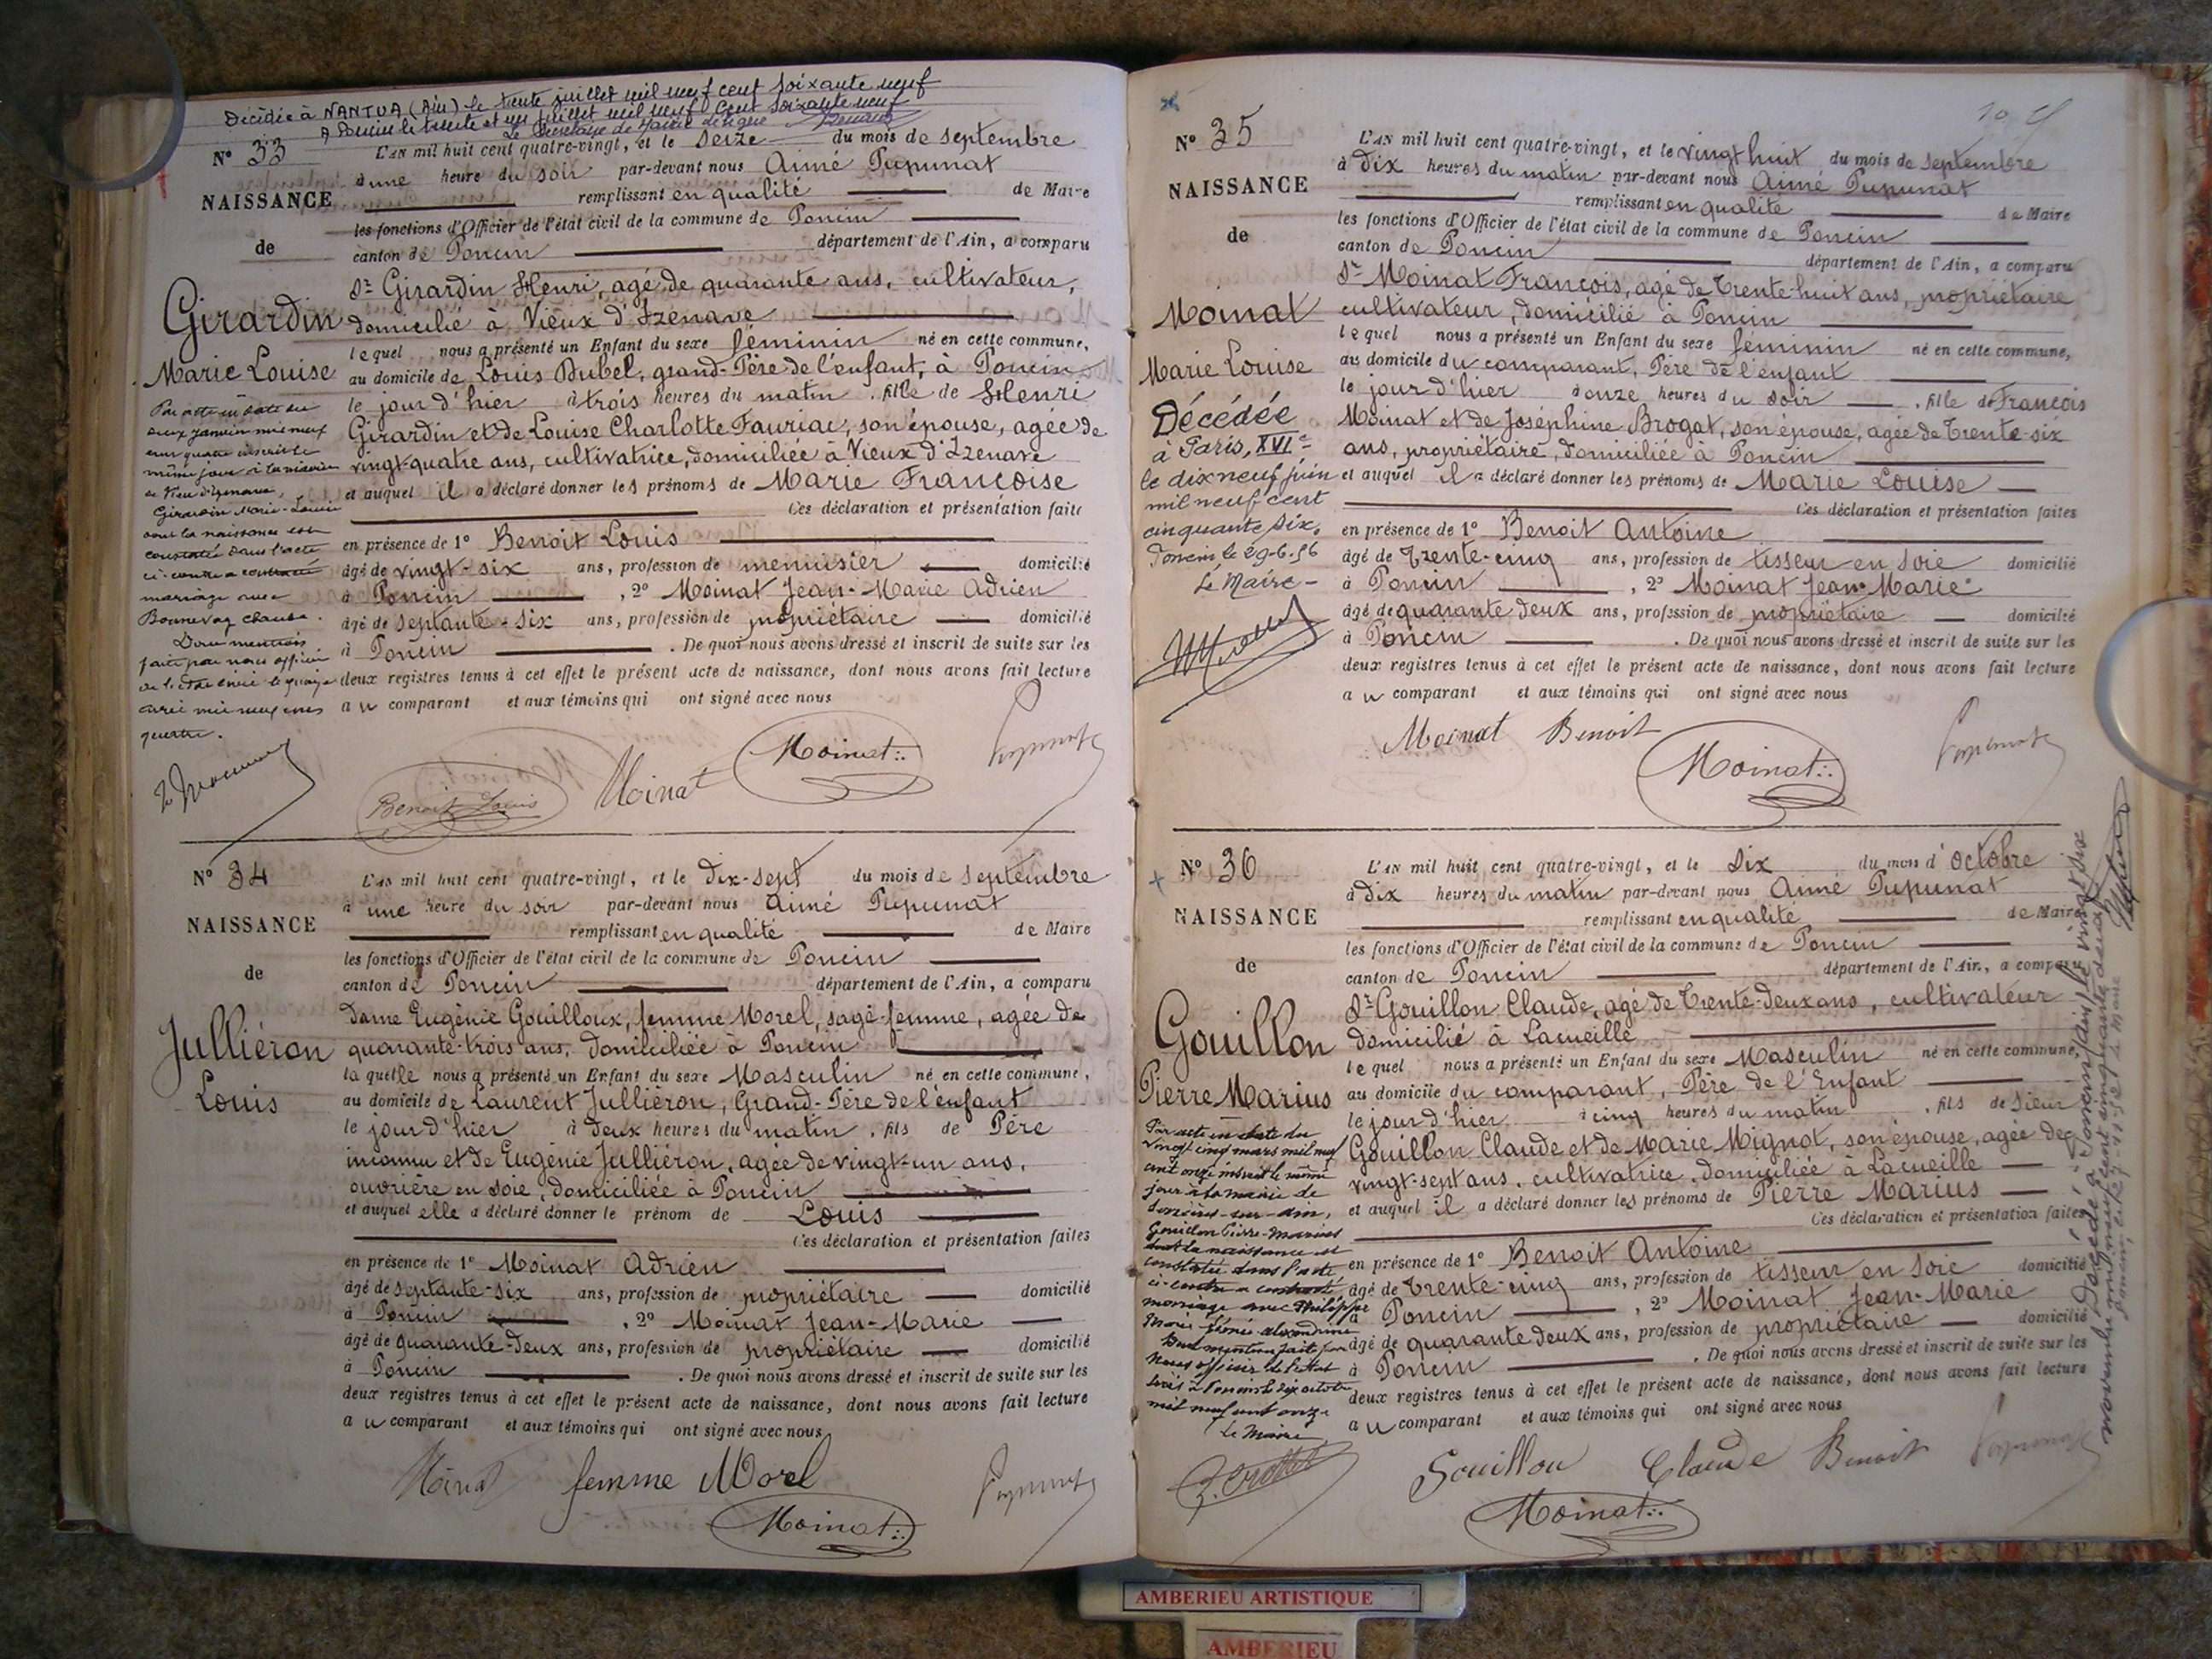 Décédée à NANTUA (Ain) le trente juillet mil neuf cent soixante neuf
A Poncin le trente et un juillet mil neuf cent soixante neuf
Le Secrétaire de Mairie délégué
N° 33
L'AN mil huit cent quatre-vingt, et le seize du mois de septembre
à une heure du soir par-devant nous Aimé Pupunat
NAISSANCE
remplissant en qualité de Maire
les fonctions d'Officier de l'état civil de la commune de Poncin
de
canton de Poncin département de l'Ain, a comparu
Sr Girardin Henri, agé de quarante ans, cultivateur,
Girardin
domicilié à Vieux d'Izenave
lequel nous a présenté un Enfant du sexe féminin né en cette commune,
Marie Louise
au domicile de Louis Dubel, grand-Père de l'enfant, à Poncin
le jour d'hier à trois heures du matin, fille de Henri
Girardin et de Louise Charlotte Fauriac, son épouse, agée de
vingt-quatre ans, cultivatrice, domiciliée à Vieux d'Izenave
et auquel il a déclaré donner les prénoms de Marie Françoise
Ces déclaration et présentation faites
en présence de 1° Benoit Louis
âgé de vingt-six ans, profession de menuisier domicilié
à Poncin , 2° Moinat Jean-Marie Adrien
âgé de septante-six ans, profession de propriétaire domicilié
à Poncin . De quoi nous avons dressé et inscrit de suite sur les
deux registres tenus à cet effet le présent acte de naissance, dont nous avons fait lecture
au comparant et aux témoins qui ont signé avec nous
Par acte en date du
deux janvier mil neuf
cent quatre inscrit le
même jour à la mairie
de Vieu d'Izenave,
Girardin Marie-Louise
dont la naissance est
constatée dans l'acte
ci-contre a contracté
mariage avec
Bonnevay Claude.
Dont mention
faite par nous officier
de l'état civil le quinze
avril mil neuf cent
quatre.
Benoit Louis
Moinat
Moinat
Pupunat
N° 34
L'AN mil huit cent quatre-vingt, et le dix-sept du mois de septembre
à une heure du soir par-devant nous Aimé Pupunat
NAISSANCE
remplissant en qualité de Maire
les fonctions d'Officier de l'état civil de la commune de Poncin
de
canton de Poncin département de l'Ain, a comparu
Dame Eugénie Gouilloux, femme Morel, sage-femme, agée de
Julliéron
quarante-trois ans, domiciliée à Poncin
laquelle nous a présenté un Enfant du sexe Masculin né en cette commune,
Louis
au domicile de Laurent Julliéron, Grand-Père de l'enfant
le jour d'hier à deux heures du matin, fils de Père
inconnu et de Eugénie Julliéron, agée de vingt-un ans,
ouvrière en soie, domiciliée à Poncin
et auquel elle a déclaré donner le prénom de Louis
Ces déclaration et présentation faites
en présence de 1° Moinat Adrien
âgé de septante-six ans, profession de propriétaire domicilié
à Poncin , 2° Moinat Jean-Marie
âgé de quarante-deux ans, profession de propriétaire domicilié
à Poncin . De quoi nous avons dressé et inscrit de suite sur les
deux registres tenus à cet effet le présent acte de naissance, dont nous avons fait lecture
au comparant et aux témoins qui ont signé avec nous
Moinat femme Morel
Pupunat
Moinat
N° 35
L'AN mil huit cent quatre-vingt, et le vingt huit du mois de septembre
à dix heures du matin par-devant nous Aimé Pupunat
NAISSANCE
remplissant en qualité de Maire
les fonctions d'Officier de l'état civil de la commune de Poncin
de
canton de Poncin département de l'Ain, a comparu
Sr Moinat François, agé de trente-huit ans, propriétaire
Moinat
cultivateur, domicilié à Poncin
lequel nous a présenté un Enfant du sexe féminin né en cette commune,
Marie Louise
au domicile du comparant, Père de l'enfant
le jour d'hier à onze heures du soir , fille de François
Moinat et de Joséphine Brogat, son épouse, agée de trente-six
ans, propriétaire, domiciliée à Poncin
et auquel il a déclaré donner les prénoms de Marie Louise
Ces déclaration et présentation faites
en présence de 1° Benoit Antoine
âgé de trente-cinq ans, profession de tisseur en soie domicilié
à Poncin , 2° Moinat Jean-Marie
âgé de quarante deux ans, profession de propriétaire domicilié
à Poncin . De quoi nous avons dressé et inscrit de suite sur les
deux registres tenus à cet effet le présent acte de naissance, dont nous avons fait lecture
au comparant et aux témoins qui ont signé avec nous
Décédée
à Paris, XVIe
le dix neuf juin
mil neuf cent
cinquante six.
Poncin le 29-6-56
Le Maire
Moinat Benoit
Moinat
Pupunat
N° 36
L'AN mil huit cent quatre-vingt, et le dix du mois d'octobre
à dix heures du matin par-devant nous Aimé Pupunat
NAISSANCE
remplissant en qualité de Maire
les fonctions d'Officier de l'état civil de la commune de Poncin
de
canton de Poncin département de l'Ain, a comparu
Sr Gouillon Claude, agé de trente-deux ans, cultivateur
Gouillon
domicilié à Lacueille
lequel nous a présenté un Enfant du sexe Masculin né en cette commune,
Pierre Marius
au domicile du comparant, Père de l'Enfant
le jour d'hier à cinq heures du matin , fils de sieur
Gouillon Claude et de Marie Mignot, son épouse, agée de
vingt-sept ans, cultivatrice, domiciliée à Lacueille
et auquel il a déclaré donner les prénoms de Pierre Marius
Ces déclaration et présentation faites
en présence de 1° Benoit Antoine
âgé de trente-cinq ans, profession de tisseur en soie domicilié
à Poncin , 2° Moinat Jean-Marie
âgé de quarante deux ans, profession de propriétaire domicilié
à Poncin . De quoi nous avons dressé et inscrit de suite sur les
deux registres tenus à cet effet le présent acte de naissance, dont nous avons fait lecture
au comparant et aux témoins qui ont signé avec nous
Par acte en date du
vingt cinq mars mil neuf
cent onze inscrit le même
jour à la mairie de
Gouillon Pierre-Marius
dont la naissance est
constatée dans l'acte
ci-contre a contracté
mariage avec Philippe
Marie alexandrine
Dont mention faite par
Nous officier de l'état
civil à Poncin le dix octobre
mil neuf cent onze
Le Maire
Décédé à Poncin (Ain) le vingt deux
novembre mil neuf cent cinquante deux
Gouillon Claude Benoit
Pupunat
Moinat
AMBERIEU ARTISTIQUE
AMBERIEU